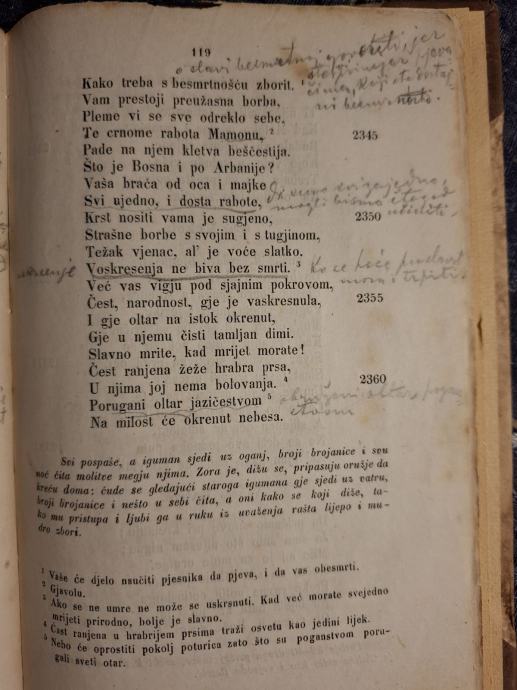 119
o slavi besmrtnoj govoriti, jer
Kako treba s besmrtnošću zborit. ¹
Vam prestoji preužasna borba,
Pleme vi se sve odreklo sebe,
Te crnome rabota Mamonu, ² 2345
Pade na njem kletva beščestija.
Što je Bosna i po Arbanije?
Vaša braća od oca i majke
Svi ujedno, i dosta rabote,
Krst nositi vama je sugjeno, 2350
Strašne borbe s svojim i s tugjinom,
Težak vjenac, al' je voće slatko.
Voskresenja ne biva bez smrti. ³
Već vas vigju pod sjajnim pokrovom,
Čest, narodnost, gje je vaskresnula, 2355
I gje oltar na istok okrenut,
Gje u njemu čisti tamljan dimi.
Slavno mrite, kad mrijet morate!
Čest ranjena žeže hrabra prsa,
U njima joj nema bolovanja. ⁴ 2360
Porugani oltar jazičestvom ⁵
Na milost će okrenut nebesa.
Svi pospaše, a iguman sjedi uz oganj, broji brojanice i svu
noć čita molitve megju njima. Zora je, dižu se, pripasuju oružje da
kreću doma: čude se gledajući staroga igumana gje sjedi uz vatru,
broji brojanice i nešto u sebi čita, a oni kako se koji diže, ta-
ko mu pristupa i ljubi ga u ruku iz uvaženja rašta lijepo i mu-
dro zbori.
¹ Vaše će djelo naučiti pjesnika da pjeva, i da vas obesmrti.
² Gjavolu.
³ Ako se ne umre ne može se uskrsnuti. Kad već morate svejedno
mrijeti prirodno, bolje je slavno.
⁴ Čast ranjena u hrabrijem prsima traži osvetu kao jedini lijek.
⁵ Nebo će oprostiti pokolj poturica zato što su poganstvom poru-
gali sveti otar.